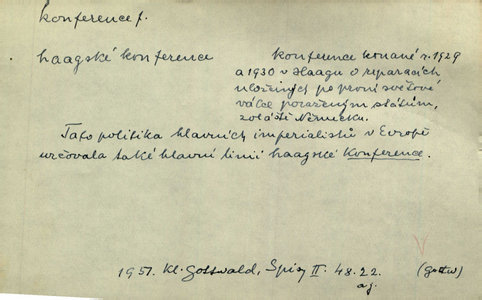 konference f.
haagské konference
konference konané r. 1929
a 1930 v Haagu o reparacích
uložených po první světové
válce poraženým státům,
zvláště Německu.
Tato politika hlavních imperialistů v Evropě
určovala také hlavní linii haagské konference.
1951. Kl. Gottwald, Spisy II. 48.22.
aj.
(Gottw)